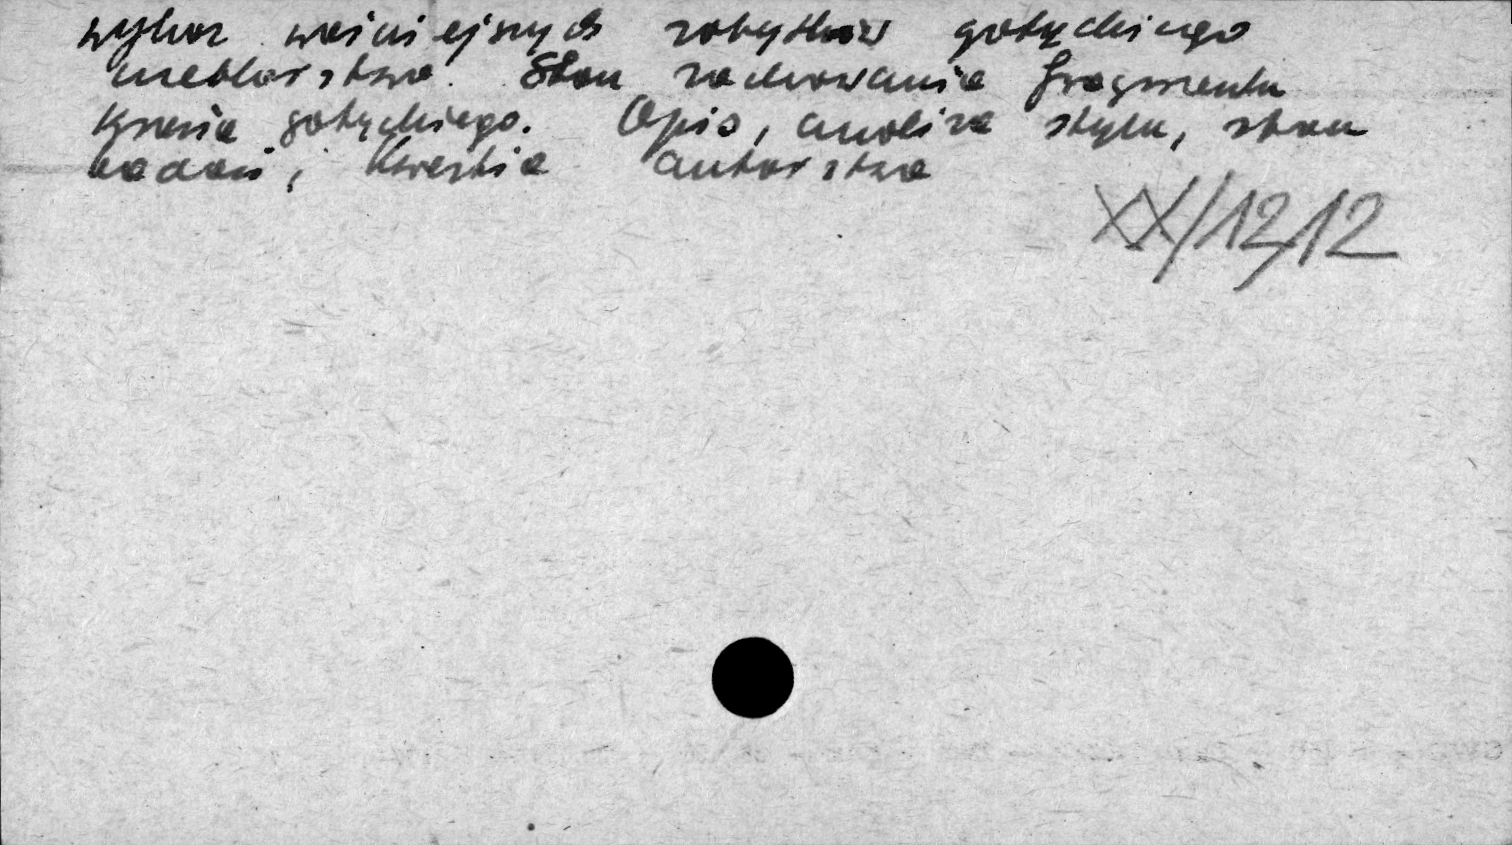 wykaz ważniejszych zabytków gotyckiego
meblarstwa. Stan zachowania fragmentu
krzesła gotyckiego. Opis, analiza stylu, stan
badań, kwestia autorstwa
XX/12/12